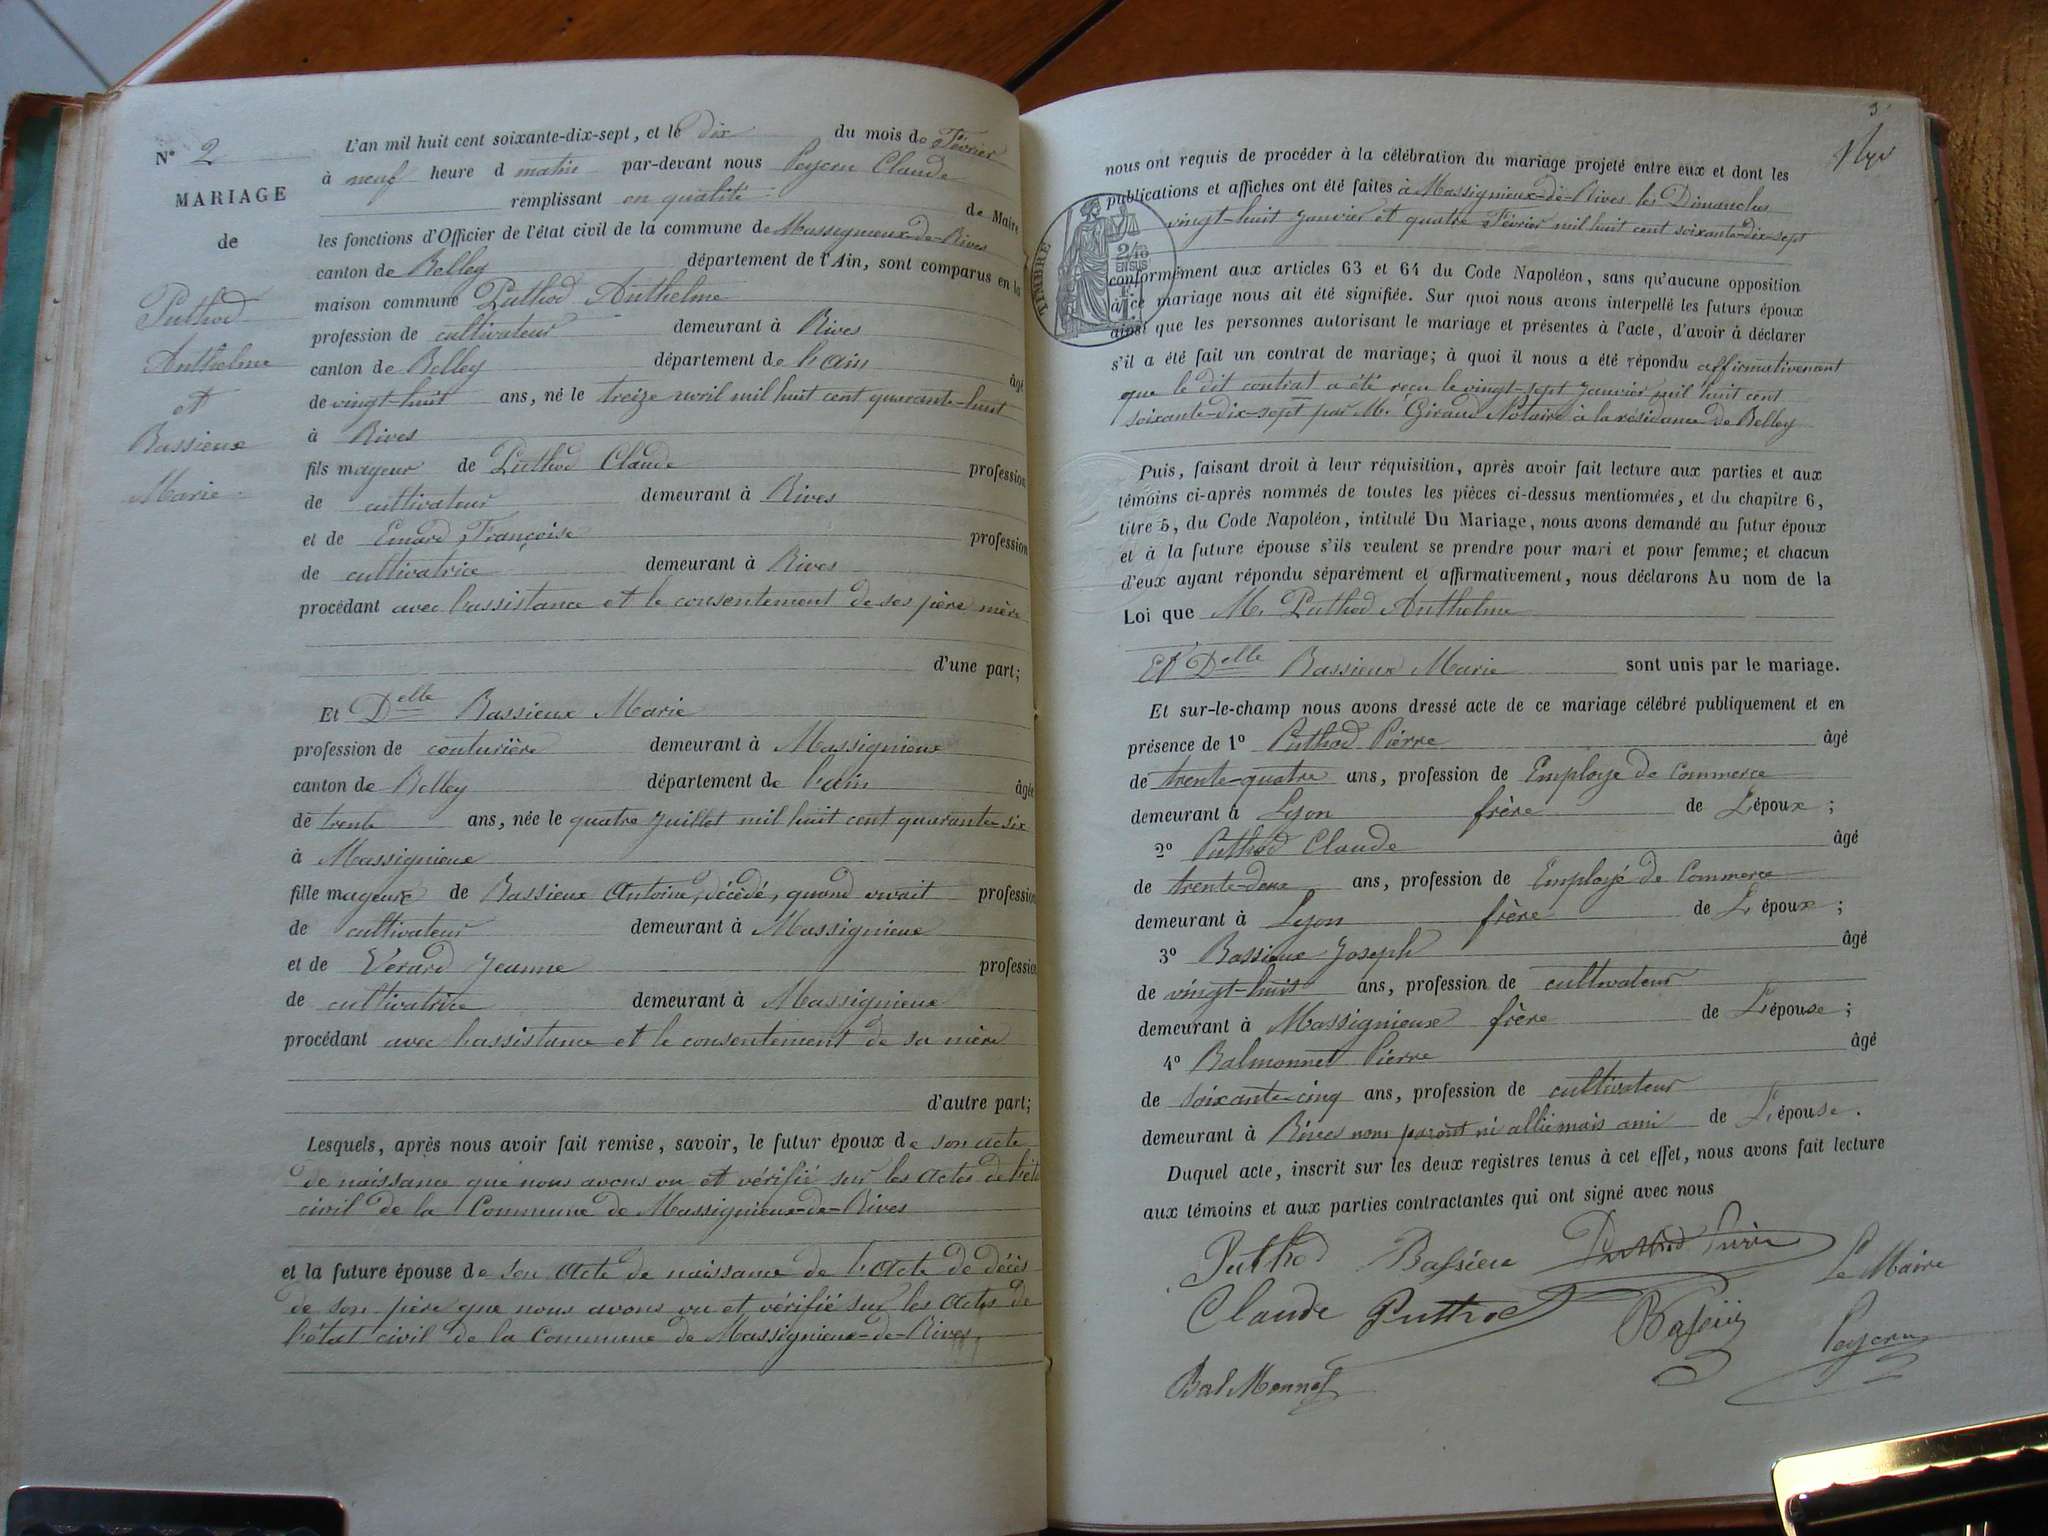 N° 2
MARIAGE
de
Puthod
Anthelme
et
Bassieux
Marie.
L'an mil huit cent soixante-dix-sept, et le dix du mois de Février
à neuf heure d matin par-devant nous Peysson Claude
remplissant en qualité de Maire
les fonctions d'Officier de l'état civil de la commune de Massignieux-de-Rives
canton de Belley département de l'Ain, sont comparus en la
maison commune Puthod Anthelme
profession de cultivateur demeurant à Rives
canton de Belley département de l'ain âgé
de vingt-huit ans, né le treize avril mil huit cent quarante-huit
à Rives
fils mageur de Puthod Claude profession
de cultivateur demeurant à Rives
et de Emard Françoise profession
de cultivatrice demeurant à Rives
procédant avec l'assistance et le consentement de ses père mère
d'une part;
Et Delle Bassieux Marie
profession de couturière demeurant à Massignieux
canton de Belley département de l'ain âgée
de trente ans, née le quatre juillet mil huit cent quarante-six
à Massignieux
fille mageure de Bassieux Antoine, décédé, quand vivait profession
de cultivateur demeurant à Massignieux
et de Vérard Jeanne profession
de cultivatrice demeurant à Massignieux
procédant avec l'assistance et le consentement de sa mère
d'autre part;
Lesquels, après nous avoir fait remise, savoir, le futur époux de son acte
de naissance que nous avons vu et vérifié sur les actes de l'état
civil de la Commune de Massignieux-de-Rives
et la future épouse de son acte de naissance de l'acte de décès
de son père que nous avons vu et vérifié sur les actes de
l'état civil de la Commune de Massignieux-de-Rives
3
nous ont requis de procéder à la célébration du mariage projeté entre eux et dont les
publications et affiches ont été faites à Massignieux-de-Rives les Dimanches
vingt-huit janvier et quatre Février mil huit cent soixante-dix-sept
TIMBRE
2/10
EN SUS
conformément aux articles 63 et 64 du Code Napoléon, sans qu'aucune opposition
à ce mariage nous ait été signifiée. Sur quoi nous avons interpellé les futurs époux
ainsi que les personnes autorisant le mariage et présentes à l'acte, d'avoir à déclarer
s'il a été fait un contrat de mariage; à quoi il nous a été répondu affirmativement
que le dit contrat a été reçu le vingt-sept janvier mil huit cent
soixante-dix-sept par Me. Giraud Notaire à la résidance de Belley
Puis, faisant droit à leur réquisition, après avoir fait lecture aux parties et aux
témoins ci-après nommés de toutes les pièces ci-dessus mentionnées, et du chapitre 6,
titre 5, du Code Napoléon, intitulé Du Mariage, nous avons demandé au futur époux
et à la future épouse s'ils veulent se prendre pour mari et pour femme; et chacun
d'eux ayant répondu séparément et affirmativement, nous déclarons Au nom de la
Loi que M. Puthod Anthelme
Et Delle Bassieux Marie sont unis par le mariage.
Et sur-le-champ nous avons dressé acte de ce mariage célébré publiquement et en
présence de 1° Puthod Pierre âgé
de trente-quatre ans, profession de Employe de Commerce
demeurant à Lyon frère de L'époux;
2° Puthod Claude âgé
de trente-deux ans, profession de Employé de Commerce
demeurant à Lyon frère de L'époux;
3° Bassieux Joseph âgé
de vingt-huit ans, profession de cultivateur
demeurant à Massignieux frère de L'épouse;
4° Balmonnet Pierre âgé
de soixante-cinq ans, profession de cultivateur
demeurant à Rives non parent ni allié mais ami de L'épouse.
Duquel acte, inscrit sur les deux registres tenus à cet effet, nous avons fait lecture
aux témoins et aux parties contractantes qui ont signé avec nous
Puthod Bassieu Puthod Pierre Le Maire
Claude Puthod
BalMonnet